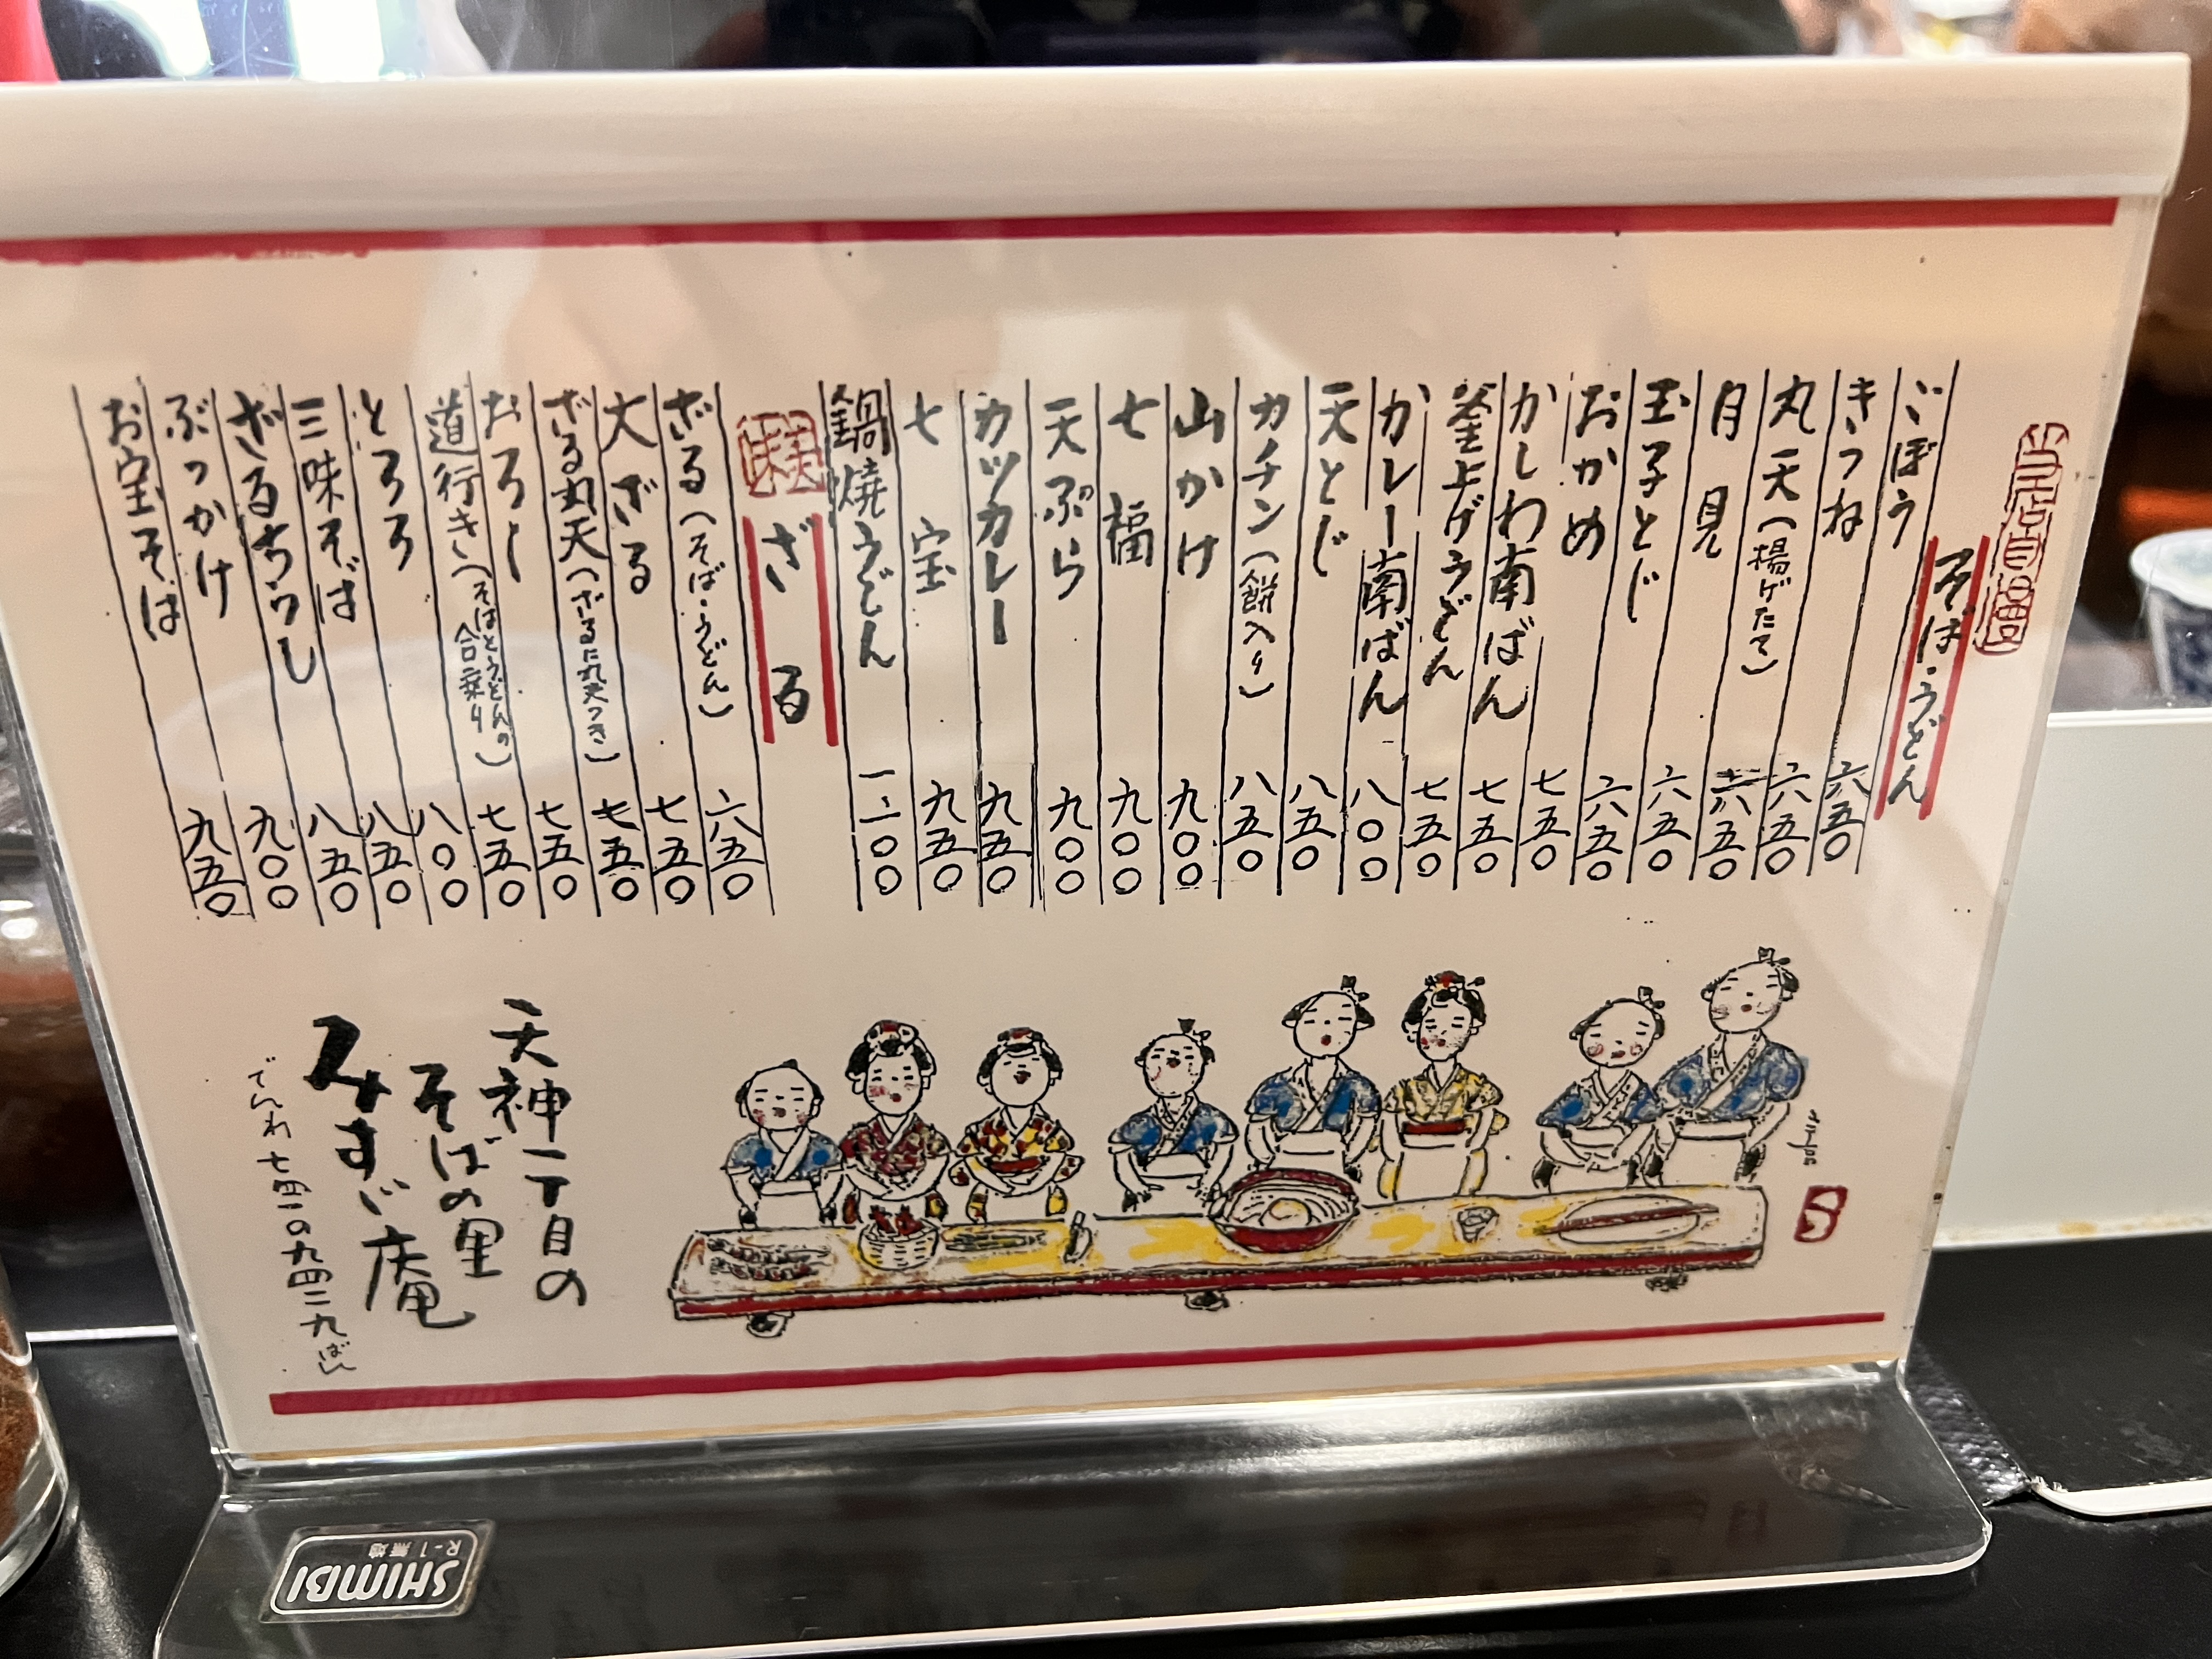 当店自慢
そば・うどん
ごぼう 六五〇
きつね 六五〇
丸天(揚げたて) 六五〇
月見 六五〇
玉子とじ 六五〇
おかめ 七五〇
かしわ南ばん 七五〇
釜上げうどん 七五〇
カレー南ばん 八〇〇
天とじ 八五〇
カチン(餅入り) 八五〇
山かけ 九〇〇
七福 九〇〇
天ぷら 九〇〇
カツカレー 九五〇
七宝 九五〇
鍋焼うどん 一二〇〇
美味
ざる
ざる(そば・うどん) 六五〇
大ざる 七五〇
ざる丸天(ざるに丸天つき) 七五〇
おろし 七五〇
道行き(そばとうどんの合乗り) 七五〇
とろろ 八〇〇
三味そば 八五〇
ざるちらし 八五〇
ぶっかけ 九〇〇
お宝そば 九五〇
天神二丁目の
そばの里
みすゞ庵
でんわ七四一の九四二九ばん
SHIMBI
R-1 無地